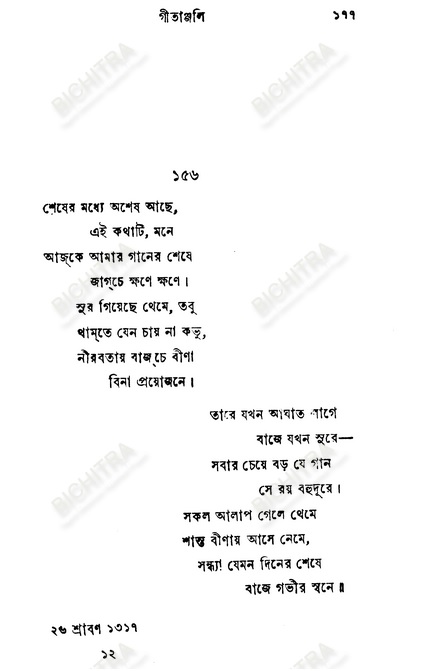 গীতাঞ্জলি ১৭৭
১৫৬
শেষের মধ্যে অশেষ আছে,
এই কথাটি, মনে
আজ্‌কে আমার গানের শেষে
জাগ্‌চে ক্ষণে ক্ষণে।
সুর গিয়েছে থেমে, তবু
থাম্‌তে যেন চায় না কভু,
নীরবতায় বাজ্‌চে বীণা
বিনা প্রয়োজনে।
তারে যখন আঘাত লাগে
বাজে যখন সুরে—
সবার চেয়ে বড় যে গান
সে রয় বহুদূরে।
সকল আলাপ গেলে থেমে
শান্ত বীণায় আসে নেমে,
সন্ধ্যা যেমন দিনের শেষে
বাজে গভীর স্বনে॥
২৬ শ্রাবণ ১৩১৭
১২
BICHITRA
BICHITRA
BICHITRA
BICHITRA
BICHITRA
BICHITRA
BICHITRA
BICHITRA